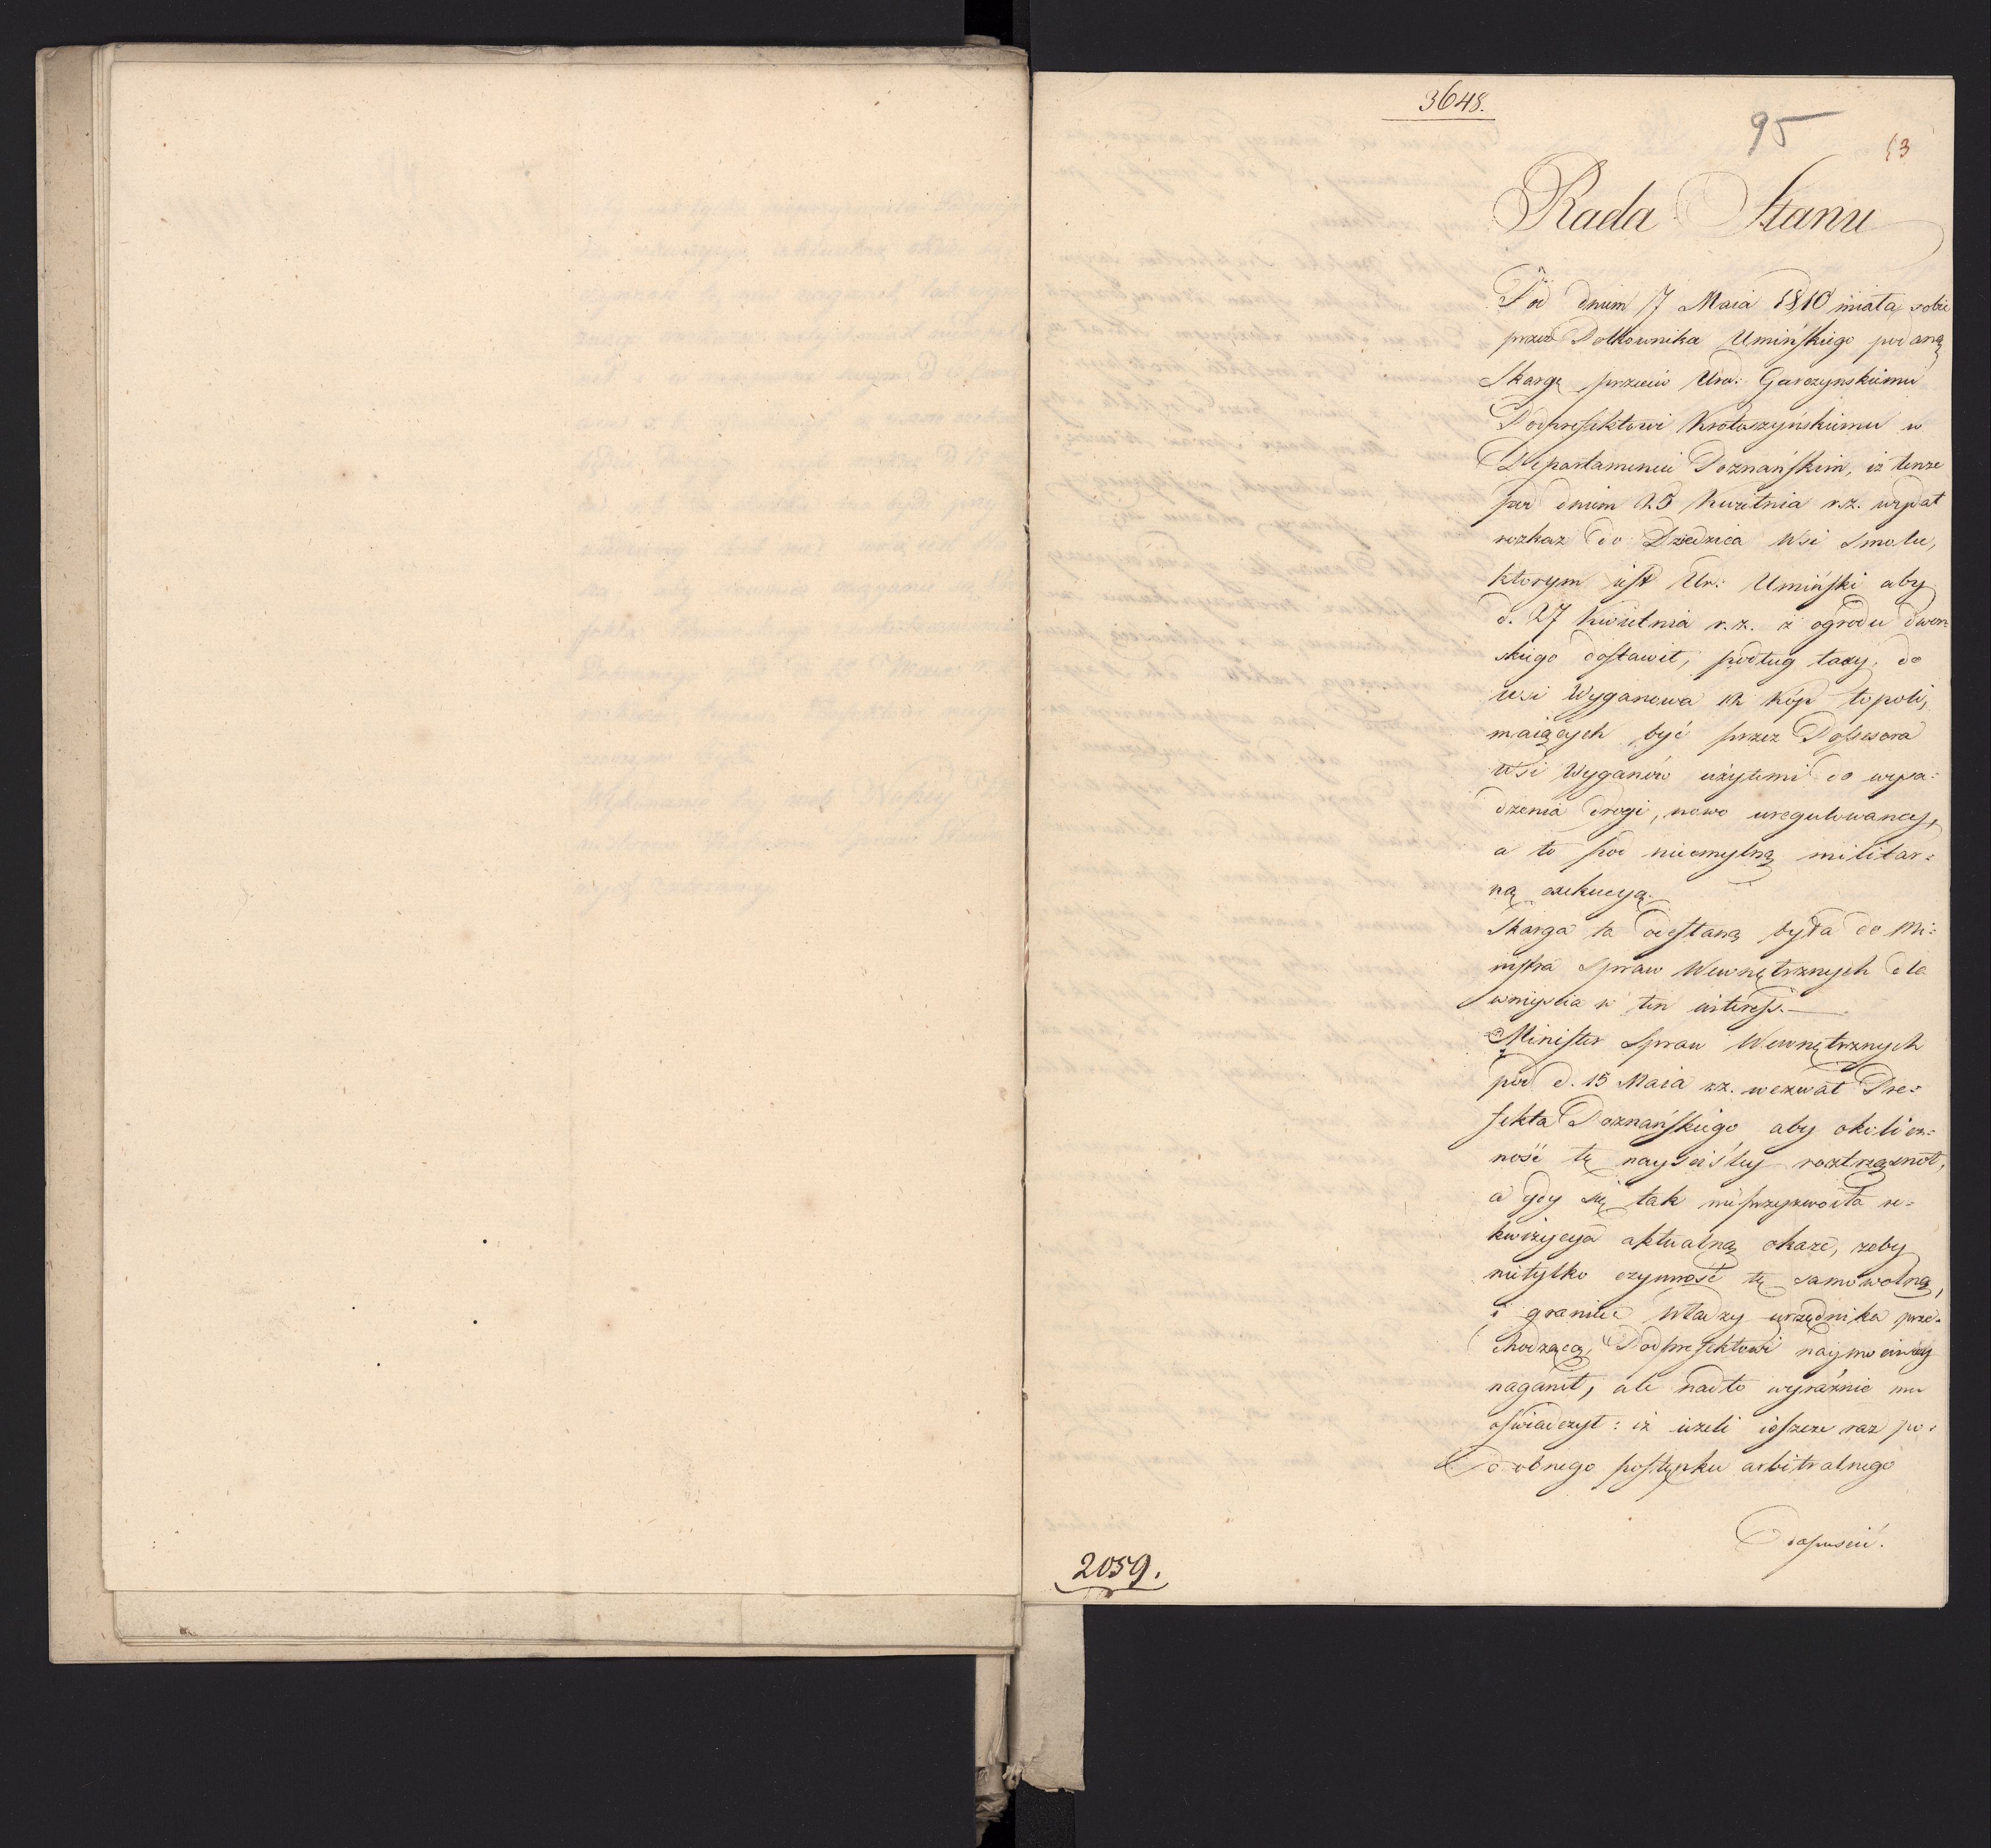 3648.
95
53
Rada Stanu
Pod dniem 7 Maia 1810 miała sobie
przez Półkownika Umińskiego podaną
Skargę przeciw Uro: Garczynskiemu
Podprefektowi Krotoszyńskiemu w
Departamencie Poznańskim, iż tenże
pod dniem 25 Kwietnia r.z. wydał
rozkaz do Dziedzica Wsi Smolic,
ktorym jest Ur: Umiński aby
d. 27 Kwietnia r.z. z ogrodu dwor=
skiego dostawił, podług taxy, do
wsi Wyganowa 12 kóp topoli,
maiących być przez Possesora
Wsi Wyganów użytemi do wysa=
dzenia drogi, nowo uregulowaney,
a to pod nieomylną militar=
ną exekucyą.
Skarga ta odesłaną była do Mi=
nistra Spraw Wewnętrznych dla
wniyścia w ten interess.—
Minister Spraw Wewnętrznych
pod d. 15 Maia rz. wezwał Pre=
fekta Poznańskiego aby okolicz=
ność tę nayściśley roztrząsnął,
a gdy się tak nieprzyzwoita re=
kwizycya aktualną okaże, żeby
nietylko czynność tę samowolną,
i granice Władzy urzędnika prze=
chodzącą, Podprefektowi naymocniey
naganił, ale nadto wyraźnie mu
oświadczył: iż ieżeli ieszcze raz po=
dobnego postępku arbitralnego
dopuści.
2059.